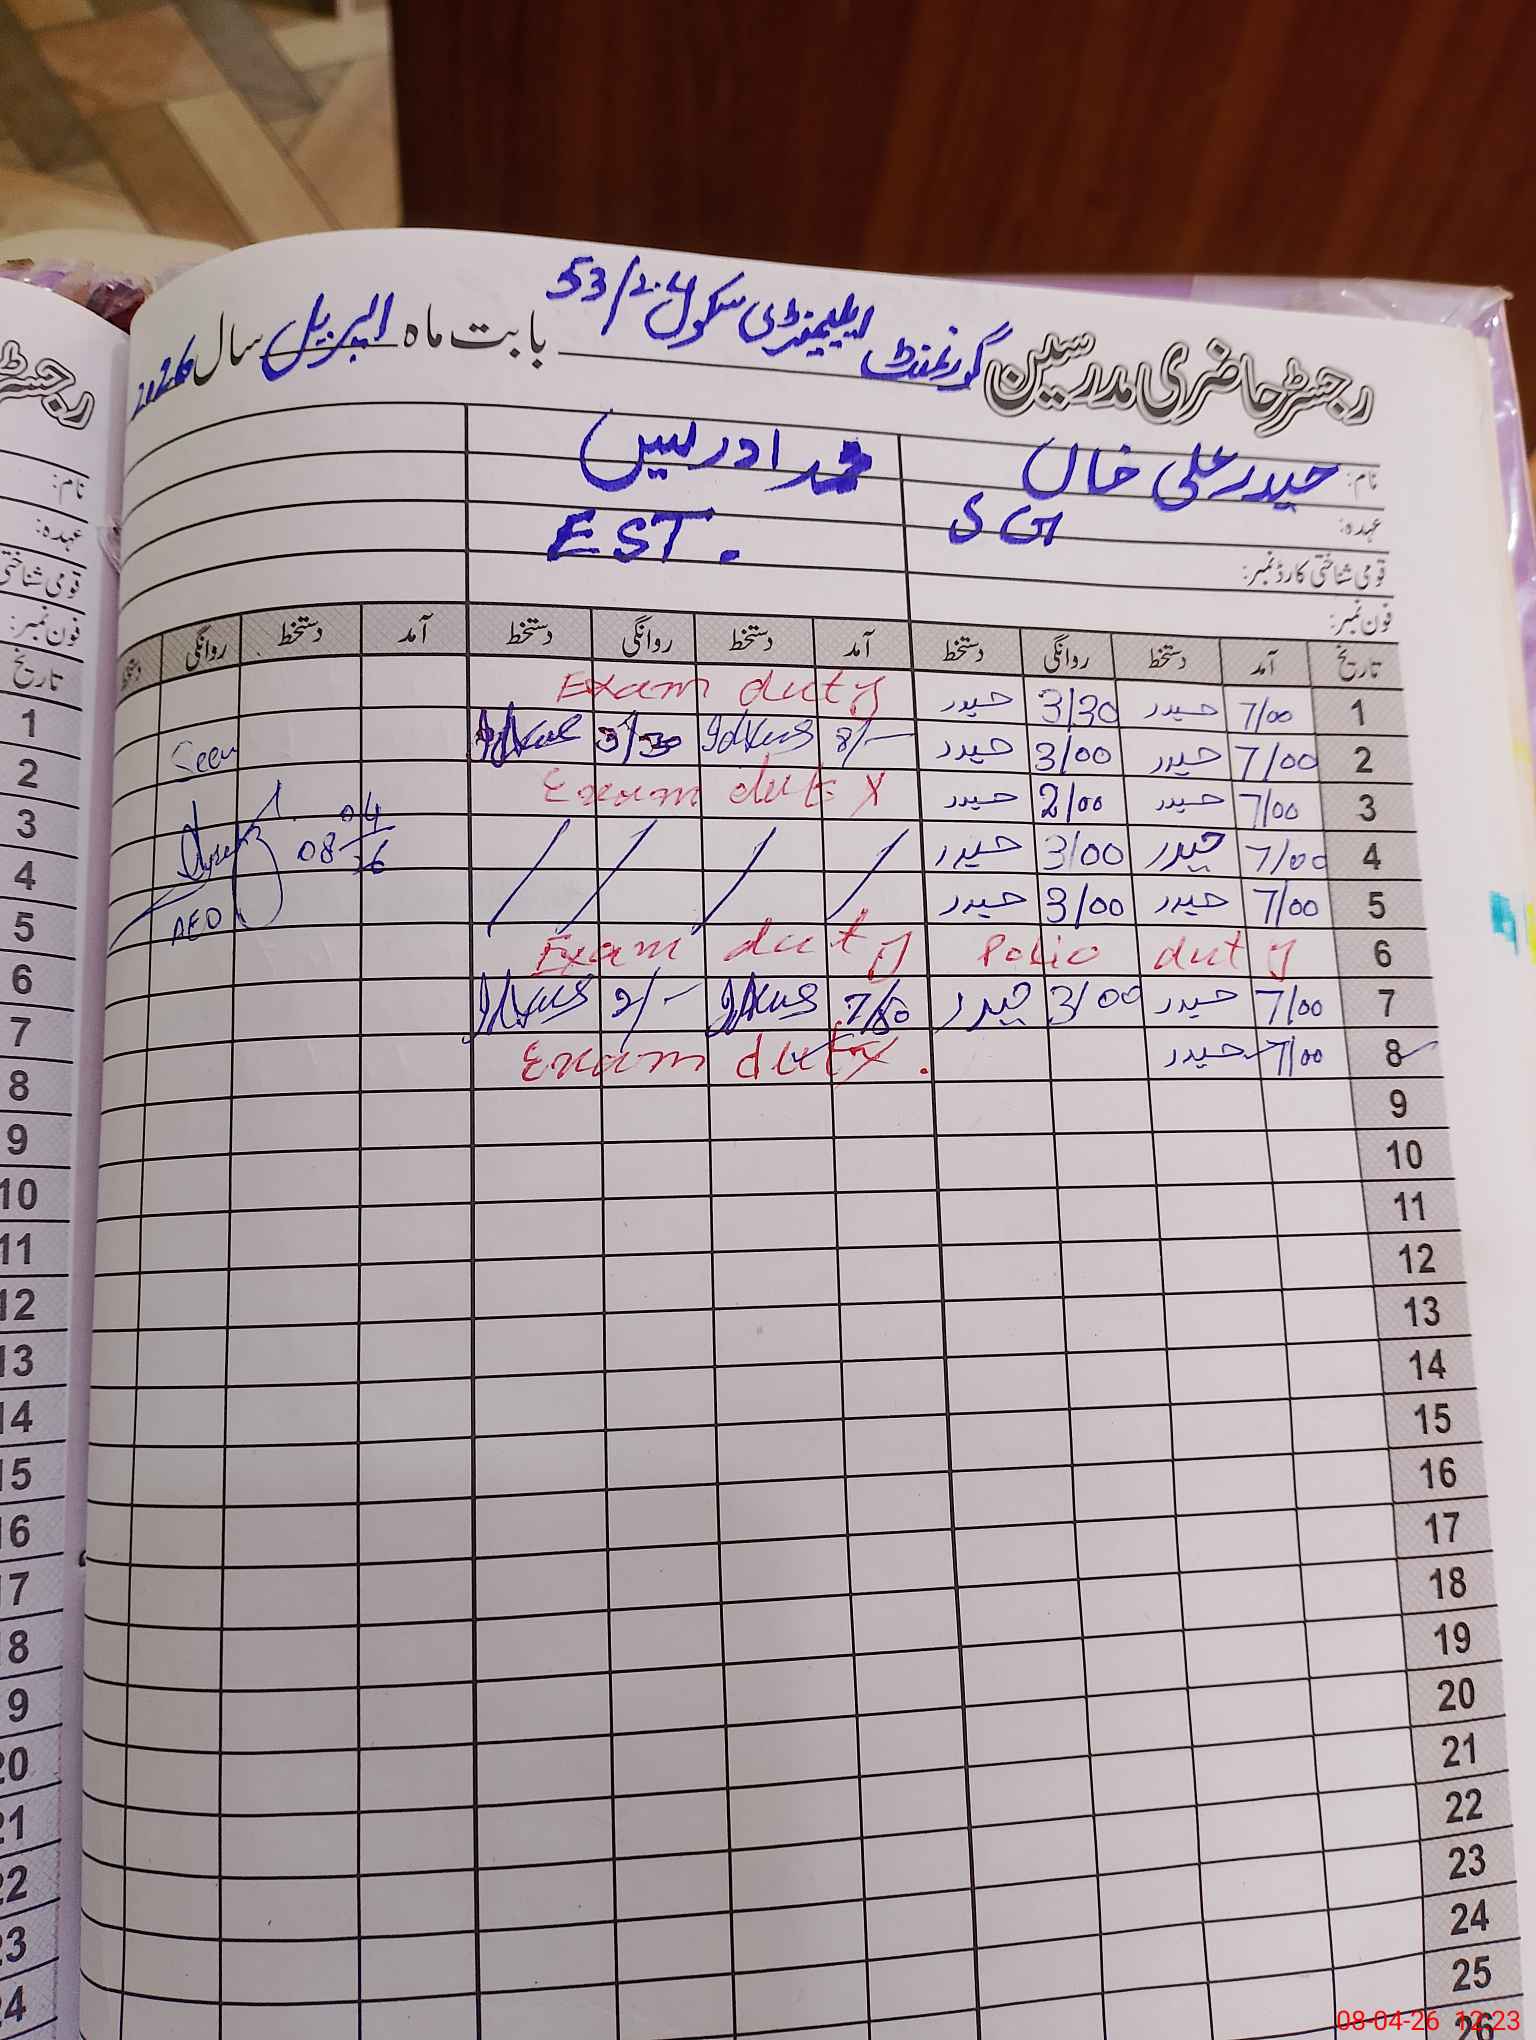 رجسٹر حاضری مدرسین گورنمنٹ ایلیمنٹری سکول 53/2.L بابت ماہ اپریل سال 2026
نام: حیدر علی خاں محمد ادریس
عہدہ: SG EST.
قومی شناختی کارڈ نمبر:
فون نمبر:
تاریخ آمد دستخط روانگی دستخط آمد دستخط روانگی دستخط آمد دستخط روانگی
1 7/00 حیدر 3/30 حیدر Exam duty
2 7/00 حیدر 3/00 حیدر 8/- 3/30 Seen
3 7/00 حیدر 2/00 حیدر Exam duty
4 7/00 حیدر 3/00 حیدر / / / / 08-04-26
5 7/00 حیدر 3/00 حیدر AEO
6 Polio duty Exam duty
7 7/00 حیدر 3/00 حیدر 7/50 2/-
8 7/00 حیدر Exam duty.
9
10
11
12
13
14
15
16
17
18
19
20
21
22
23
24
25
26
رجسٹر
نام:
عہدہ:
قومی شناختی
فون نمبر:
تاریخ
1
2
3
4
5
6
7
8
9
10
11
12
13
14
15
16
17
18
19
20
21
22
23
24
08-04-26 12:23